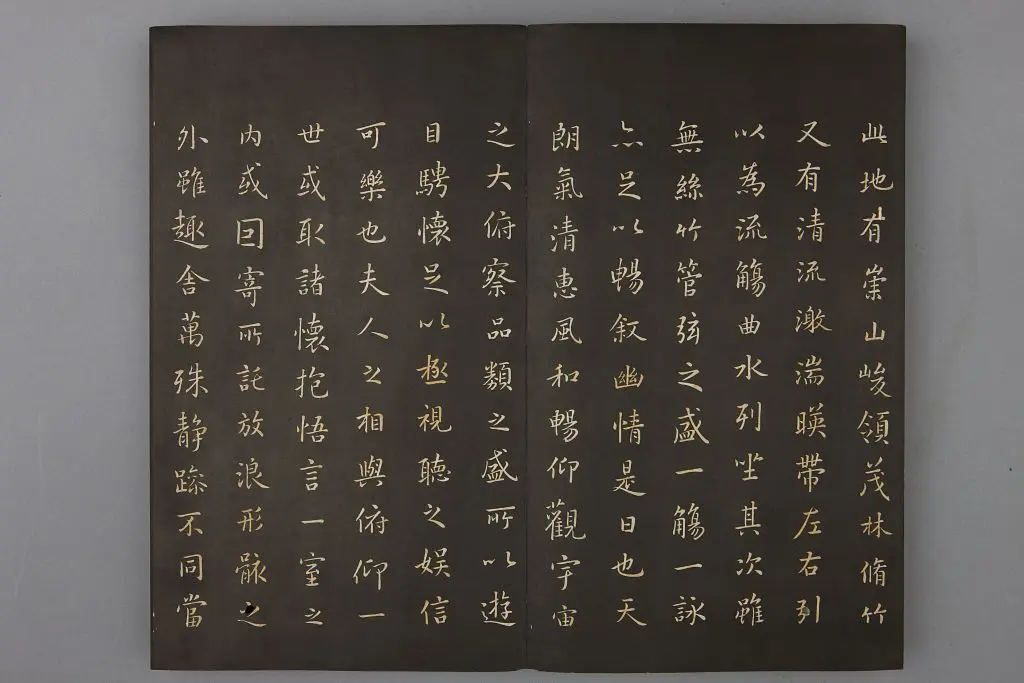 此地有崇山峻領茂林脩竹
又有清流激湍暎帶左右引
以為流觴曲水列坐其次雖
無絲竹管弦之盛一觴一詠
亦足以暢敘幽情是日也天
朗氣清惠風和暢仰觀宇宙
之大俯察品類之盛所以遊
目騁懷足以極視聽之娛信
可樂也夫人之相與俯仰一
世或取諸懷抱悟言一室之
內或因寄所託放浪形骸之
外雖趣舍萬殊静躁不同當